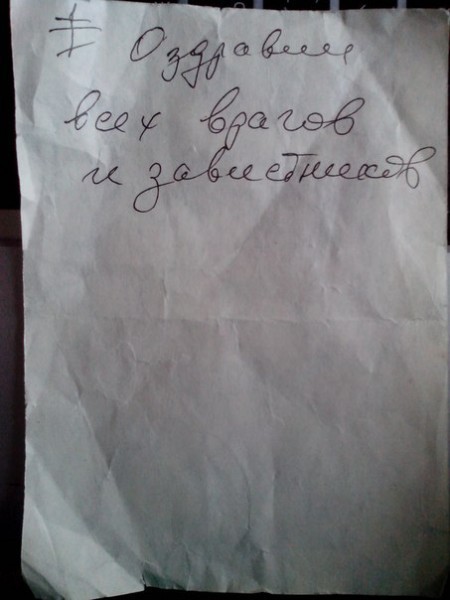 О здравии
всех врагов
и завистников